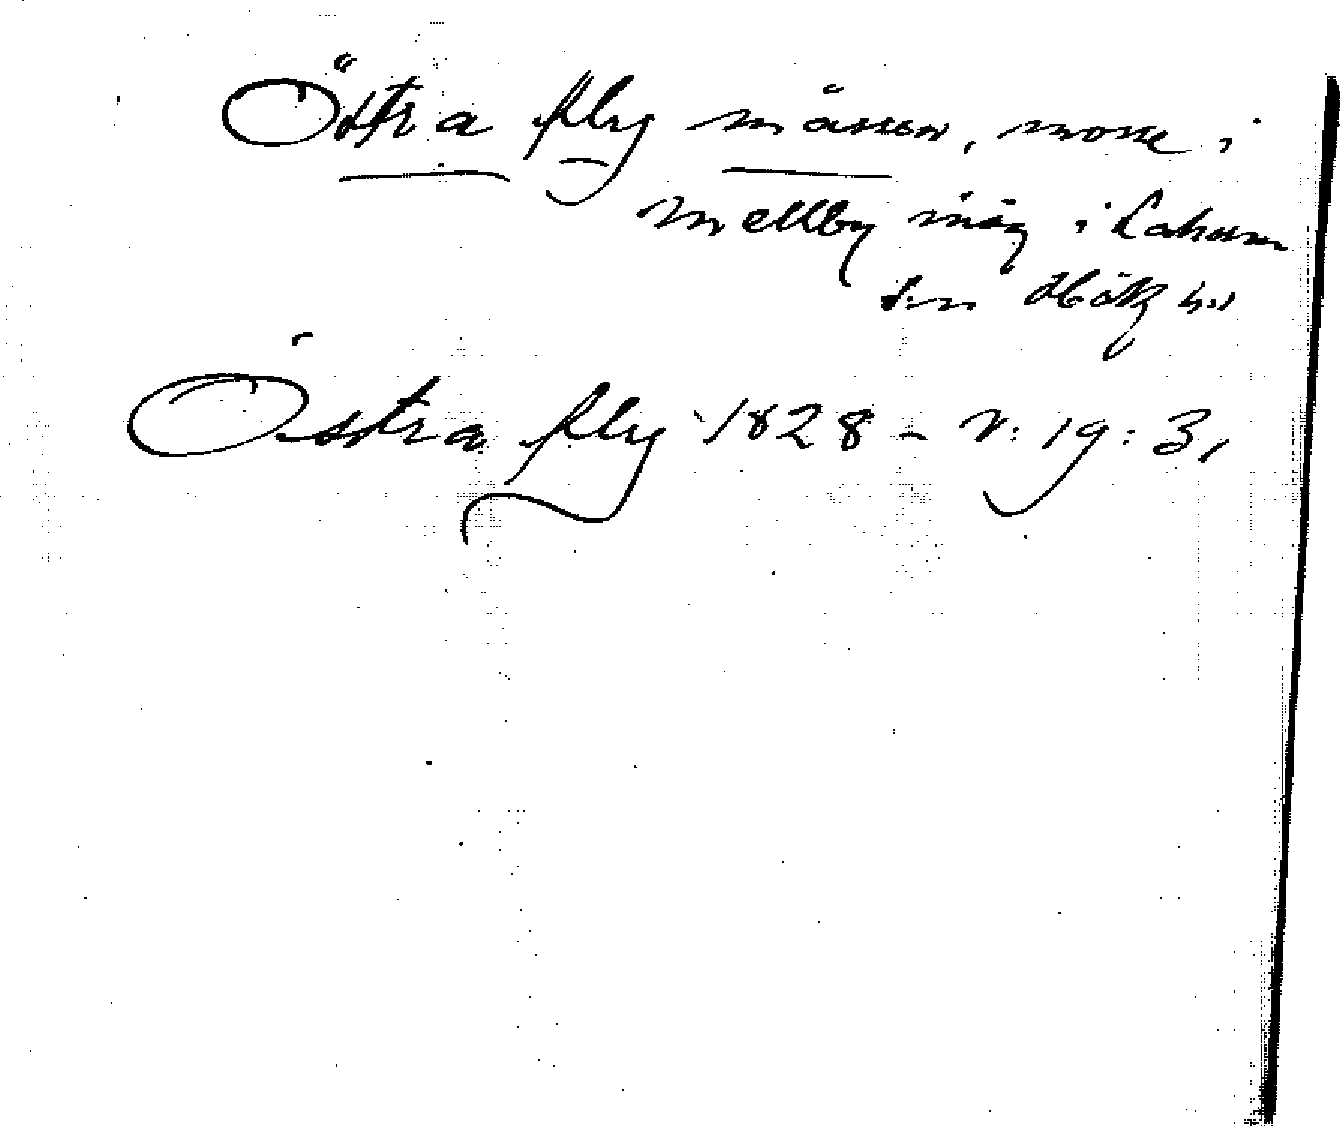 Östra fly måssen, mosse i
Mellby mäg i Laholm
Sn Hök hd
Östra fly 1828 - v: 19: 3,